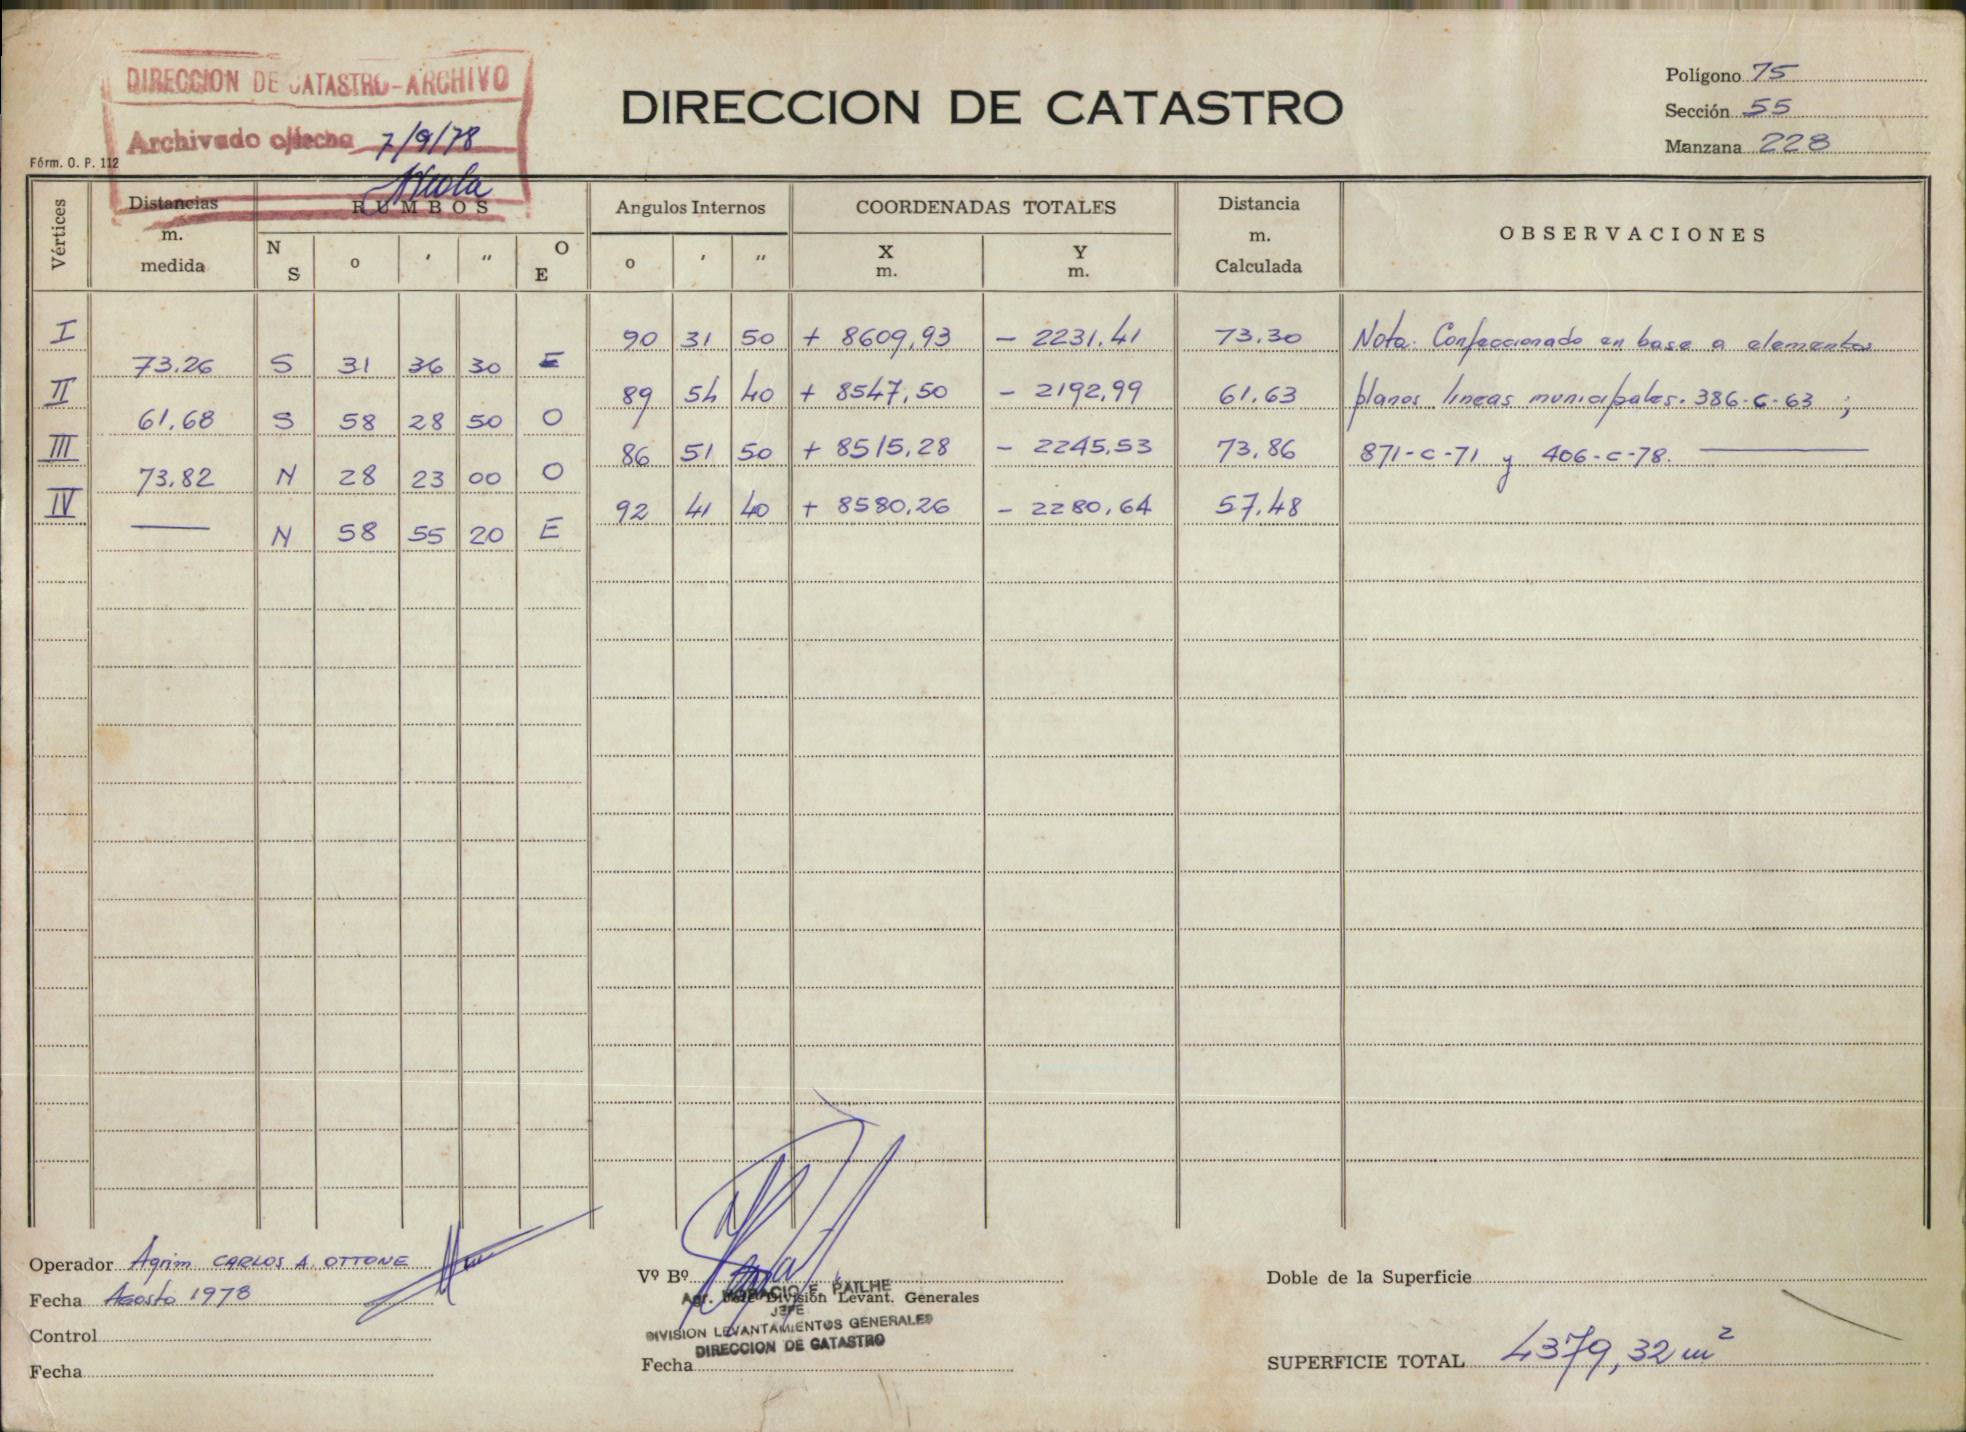 DIRECCION DE CATASTRO-ARCHIVO
Archivado c/fecha 7/9/78
DIRECCION DE CATASTRO
Polígono 75
Sección 55
Manzana 228
Fórm. O. P. 112
Vértices
Distancias m. medida
RUMBOS
N S o ′ ″ O E
Angulos Internos
o ′ ″
COORDENADAS TOTALES
X m. Y m.
Distancia m. Calculada
OBSERVACIONES
I 90 31 50 + 8609,93 - 2231,41 73.30 Nota: Confeccionado en base a elementos
73.26 S 31 36 30 E
II 89 54 40 + 8547,50 - 2192,99 61.63 planos lineas municipales. 386-C-63 ;
61,68 S 58 28 50 O
III 86 51 50 + 8515,28 - 2245,53 73,86 871-C-71 y 406-C-78.
73,82 N 28 23 00 O
IV 92 41 40 + 8580,26 - 2280,64 57,48
N 58 55 20 E
Operador Agrim CARLOS A. OTTONE
Fecha Agosto 1978
Control
Fecha
Vº Bº
HORACIO E. PAILHE
Agr. Jefe División Levant. Generales
JEFE
DIVISION LEVANTAMIENTOS GENERALES
DIRECCION DE CATASTRO
Fecha
Doble de la Superficie
SUPERFICIE TOTAL 4379,32 m²